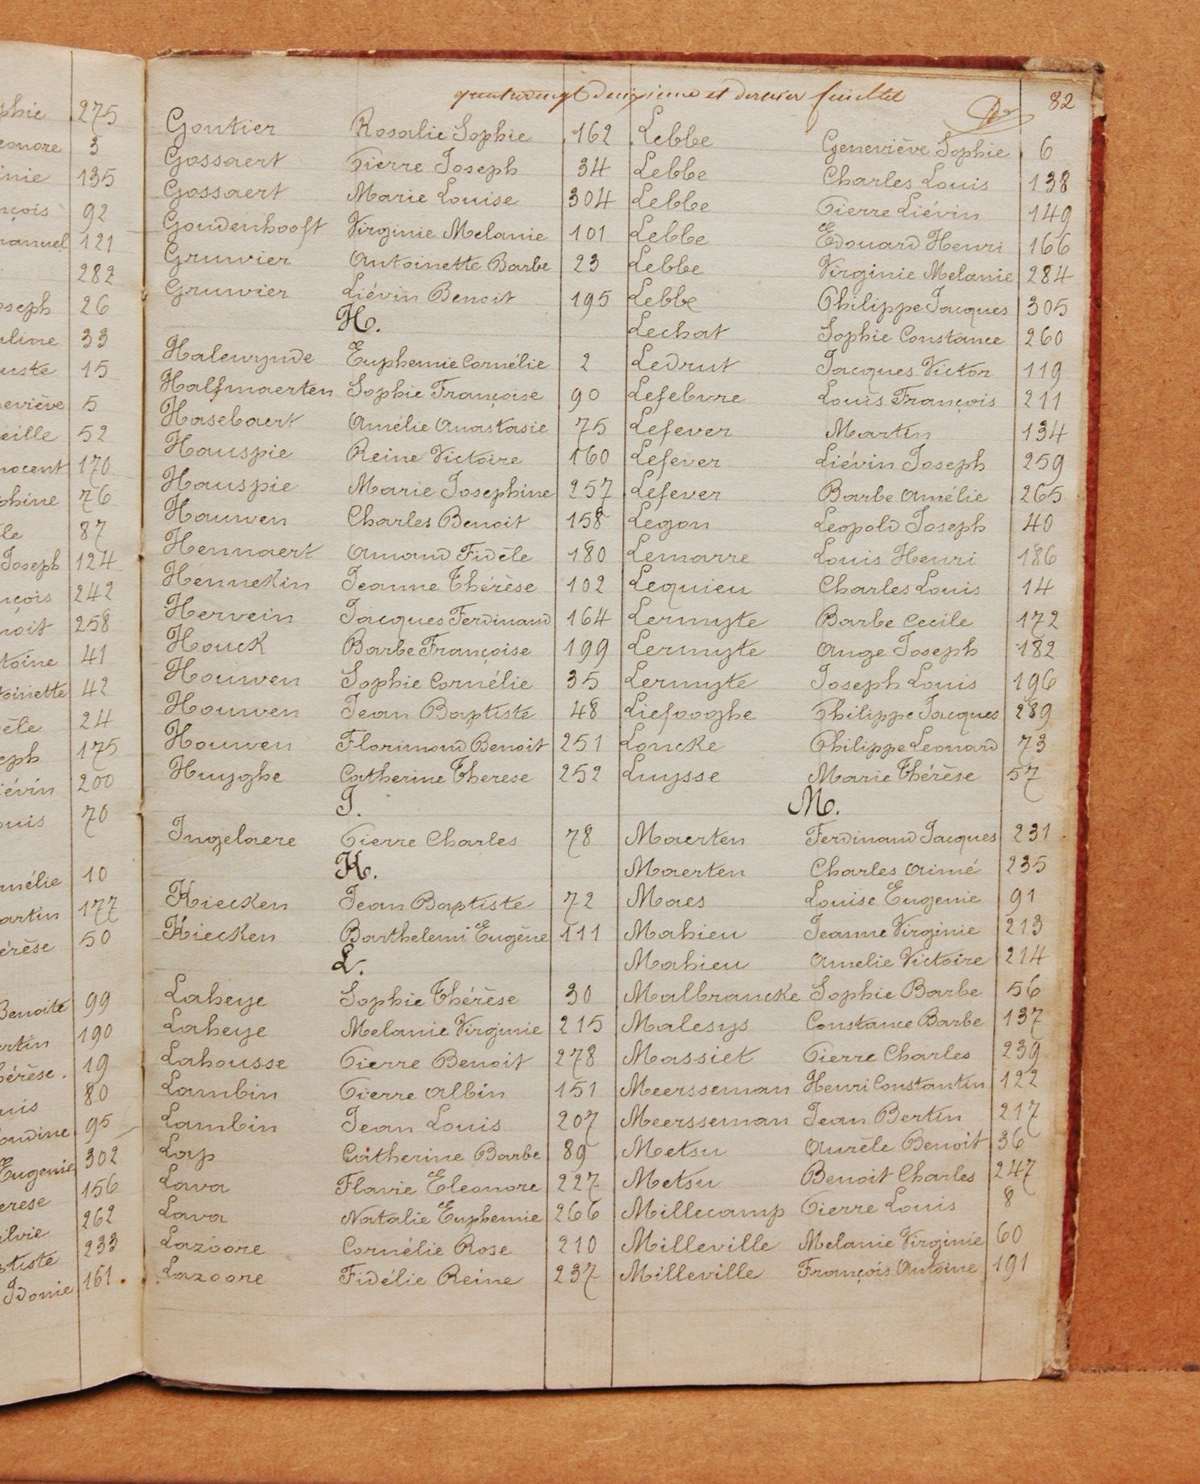 phie 275
eonore 3
inie 135
nçois 92
manuel 121
282
oseph 26
uline 33
uste 15
neviève 5
52
nocent 170
phine 76
le 87
Joseph 124
nçois 242
noit 258
toine 41
toinette 42
èle 24
eph 175
iévin 200
ouis 70
mélie 10
artin 177
érèse 50
Benoite 99
190
érèse. 19
uis 80
95
Eugenie 302
erese 156
lvie 262
tiste 233
Idonie 161.
quatrevingt deuxième et dernier feuillet
82
Goutier Rosalie Sophie 162
Gossaert Pierre Joseph 34
Gossaert Marie Louise 304
Goudenhooft Virginie Melanie 101
Gruwier Antoinette Barbe 23
Gruwier Liévin Benoit 195
H.
Halewynde Euphemie Cornélie 2
Halfmaerten Sophie Françoise 90
Hasebaert Amélie Anastasie 75
Hauspie Reine Victoire 160
Hauspie Marie Josephine 257
Hauwen Charles Benoit 158
Hennaert Amand Fidèle 180
Hennekin Jeanne Thérèse 102
Hervein Jacques Ferdinand 164
Houck Barbe Françoise 199
Houwen Sophie Cornélie 35
Houwen Jean Baptiste 48
Houwen Florimond Benoit 251
Huyghe Catherine Therese 252
I.
Ingelaere Pierre Charles 78
K.
Kiecken Jean Baptiste 72
Kiecken Barthelemi Eugène 111
L.
Laheye Sophie Thérèse 30
Laheye Melanie Virginie 215
Lahousse Pierre Benoit 278
Lambin Pierre Albin 151
Lambin Jean Louis 207
Lap Catherine Barbe 89
Lava Flavie Eleonore 227
Lava Natalie Euphemie 266
Lazoore Cornélie Rose 210
Lazoore Fidélie Reine 237
Lebbe Geneviève Sophie 6
Lebbe Charles Louis 138
Lebbe Pierre Liévin 149
Lebbe Edouard Henri 166
Lebbe Virginie Melanie 284
Lebbe Philippe Jacques 305
Lechat Sophie Constance 260
Ledrut Jacques Victor 119
Lefebvre Louis François 211
Lefever Martin 134
Lefever Liévin Joseph 259
Lefever Barbe Amélie 265
Legon Leopold Joseph 40
Lemarre Louis Henri 186
Lequieu Charles Louis 14
Lermyte Barbe Cecile 172
Lermyte Ange Joseph 182
Lermyte Joseph Louis 196
Liefooghe Philippe Jacques 289
Loncke Philippe Leonard 73
Luysse Marie Thérèse 57
M.
Maerten Ferdinand Jacques 231
Maerten Charles Aimé 235
Maes Louise Eugenie 91
Mahieu Jeanne Virginie 213
Mahieu Amelie Victoire 214
Malbrancke Sophie Barbe 56
Malesys Constance Barbe 137
Massiet Pierre Charles 239
Meersseman Henri Constantin 122
Meersseman Jean Bertin 217
Metsu Aurèle Benoit 36
Metsu Benoit Charles 247
Millecamp Pierre Louis 8
Milleville Melanie Virginie 60
Milleville François Antoine 191